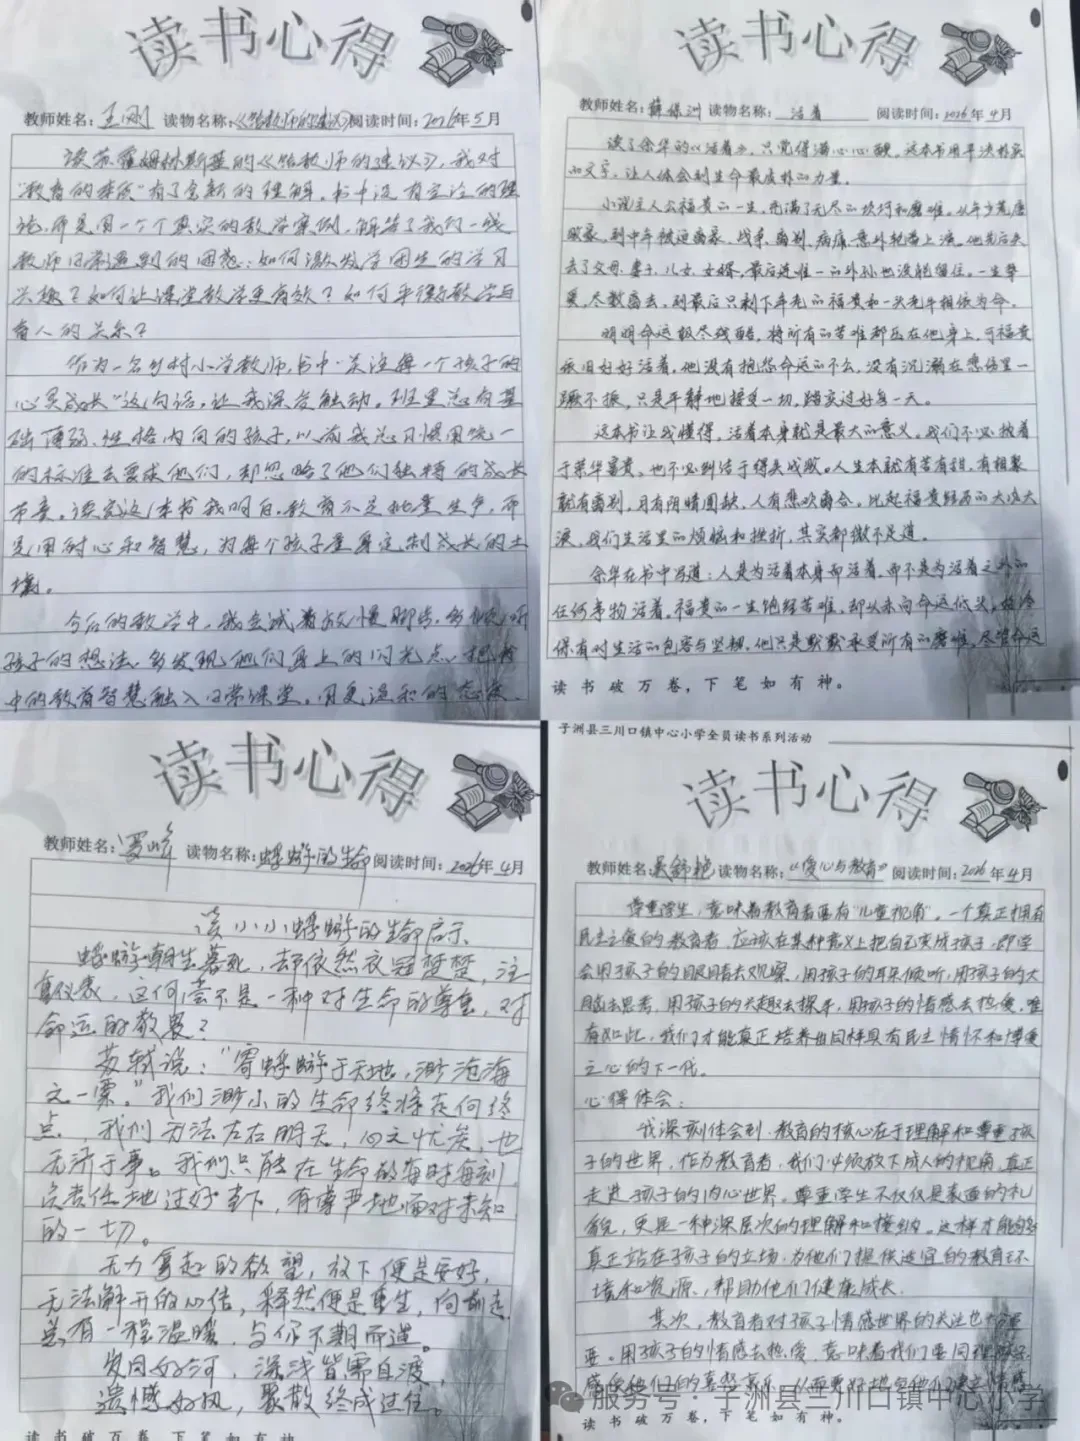 读书心得
教师姓名：王刚 读物名称：《给教师的建议》阅读时间：2026年5月
读苏霍姆林斯基的《给教师的建议》，我对
"教育的本质"有了全新的理解。书中没有空论的理
论，而是用一个个真实的教学案例，解答了我们一线
教师日常遇到的困惑：如何激发学困生的学习
兴趣？如何让课堂教学更有效？如何平衡教学与
育人的关系？
作为一名乡村小学教师，书中"关注每一个孩子的
心灵成长"这句话，让我深受触动。班里总有基
础薄弱、性格内向的孩子，以前我总习惯用统一
的标准去要求他们，却忽略了他们独特的成长
节奏。读完这本书我明白，教育不是批量生产，而
是用耐心和智慧，为每个孩子量身定制成长的土
壤。
今后的教学中，我会试着放慢脚步，多倾听
孩子的想法，多发现他们身上的闪光点，把书
中的教育智慧融入日常课堂，用更温和的态度、
读书心得
教师姓名：薛保洲 读物名称：活着 阅读时间：2026年4月
读了余华的《活着》，只觉得满心心酸，这本书用平淡朴实
的文字，让人体会到生命最质朴的力量。
小说主人公福贵的一生，充满了无尽的坎坷和磨难。从年少荒唐
败家，到中年被迫离家，战争、离别、病痛、意外轮番上演。他先后失
去了父母、妻子、儿女、女婿，最后连唯一的外孙也没能留住。一生挚
爱，尽数离去，到最后只剩下年老的福贵和一头老牛相依为命。
明明命运极尽残酷，将所有的苦难都压在他身上，可福贵
依旧好好活着。他没有抱怨命运的不公，没有沉溺在悲伤里一
蹶不振，只是平静地接受一切，踏实过好每一天。
这本书让我懂得，活着本身就是最大的意义。我们不必执着
于荣华富贵，也不必纠结于得失成败。人生本就有苦有甜，有相聚
就有离别，月有阴晴圆缺，人有悲欢离合，比起福贵经历的大风大
浪，我们生活里的烦恼和挫折，其实都微不足道。
余华在书中写道：人是为活着本身而活着，而不是为活着之外的
任何事物活着。福贵的一生饱经苦难，却从未向命运低头，始终
保有对生活的包容与坚韧。他只是默默承受所有的磨难，尽管命运
读书破万卷，下笔如有神。
读书心得
教师姓名：罗峰 读物名称：蜉蝣的生命 阅读时间：2026年4月
谈小小蜉蝣的生命启示
蜉蝣朝生暮死，却依然衣冠楚楚，注
重仪表，这何尝不是一种对生命的尊重，对
命运的敬畏？
苏轼说："寄蜉蝣于天地，渺沧海
之一粟。"我们渺小的生命终将走向终
点，我们无法左右明天，口之忧炭，也
无济于事。我们只能在生命的每时每刻，
负责任地过好当下，有尊严地面对未知
的一切。
无力拿起的欲望，放下便是安好，
无法解开的心结，释然便是重生，向前走
总有一程温暖，与你不期而遇。
岁月如河，深浅皆需自渡，
遗憾如风，聚散终成过往。
读书破万卷，下笔如有神。
子洲县三川口镇中心小学全员读书系列活动
读书心得
教师姓名：吴舒艳 读物名称：《爱心与教育》 阅读时间：2026年4月
尊重学生，意味着教育者要有"儿童视角"。一个真正拥有
民主之爱的教育者，应该在某种意义上把自己变成孩子，即学
会用孩子的眼睛去观察，用孩子的耳朵倾听，用孩子的大
脑去思考，用孩子的兴趣去探寻，用孩子的情感去热爱，唯
有如此，我们才能真正培养出同样具有民主情怀和博爱
之心的下一代。
心得体会：
我深刻体会到，教育的核心在于理解和尊重孩
子的世界，作为教育者，我们必须放下成人的视角，真正
走进孩子的内心世界。尊重学生不仅仅是表面的礼
貌，更是一种深层次的理解和接纳。这样才能够
真正站在孩子的立场，为他们提供适宜的教育环
境和资源，帮助他们健康成长。
其次，教育者对孩子情感世界的关注也十分重
要。用孩子的情感去热爱，意味着我们要同理
感受他们的喜怒哀乐，从而更好地与他们建立情感
读书破万卷，下笔如有神。
服务号·子洲县三川口镇中心小学